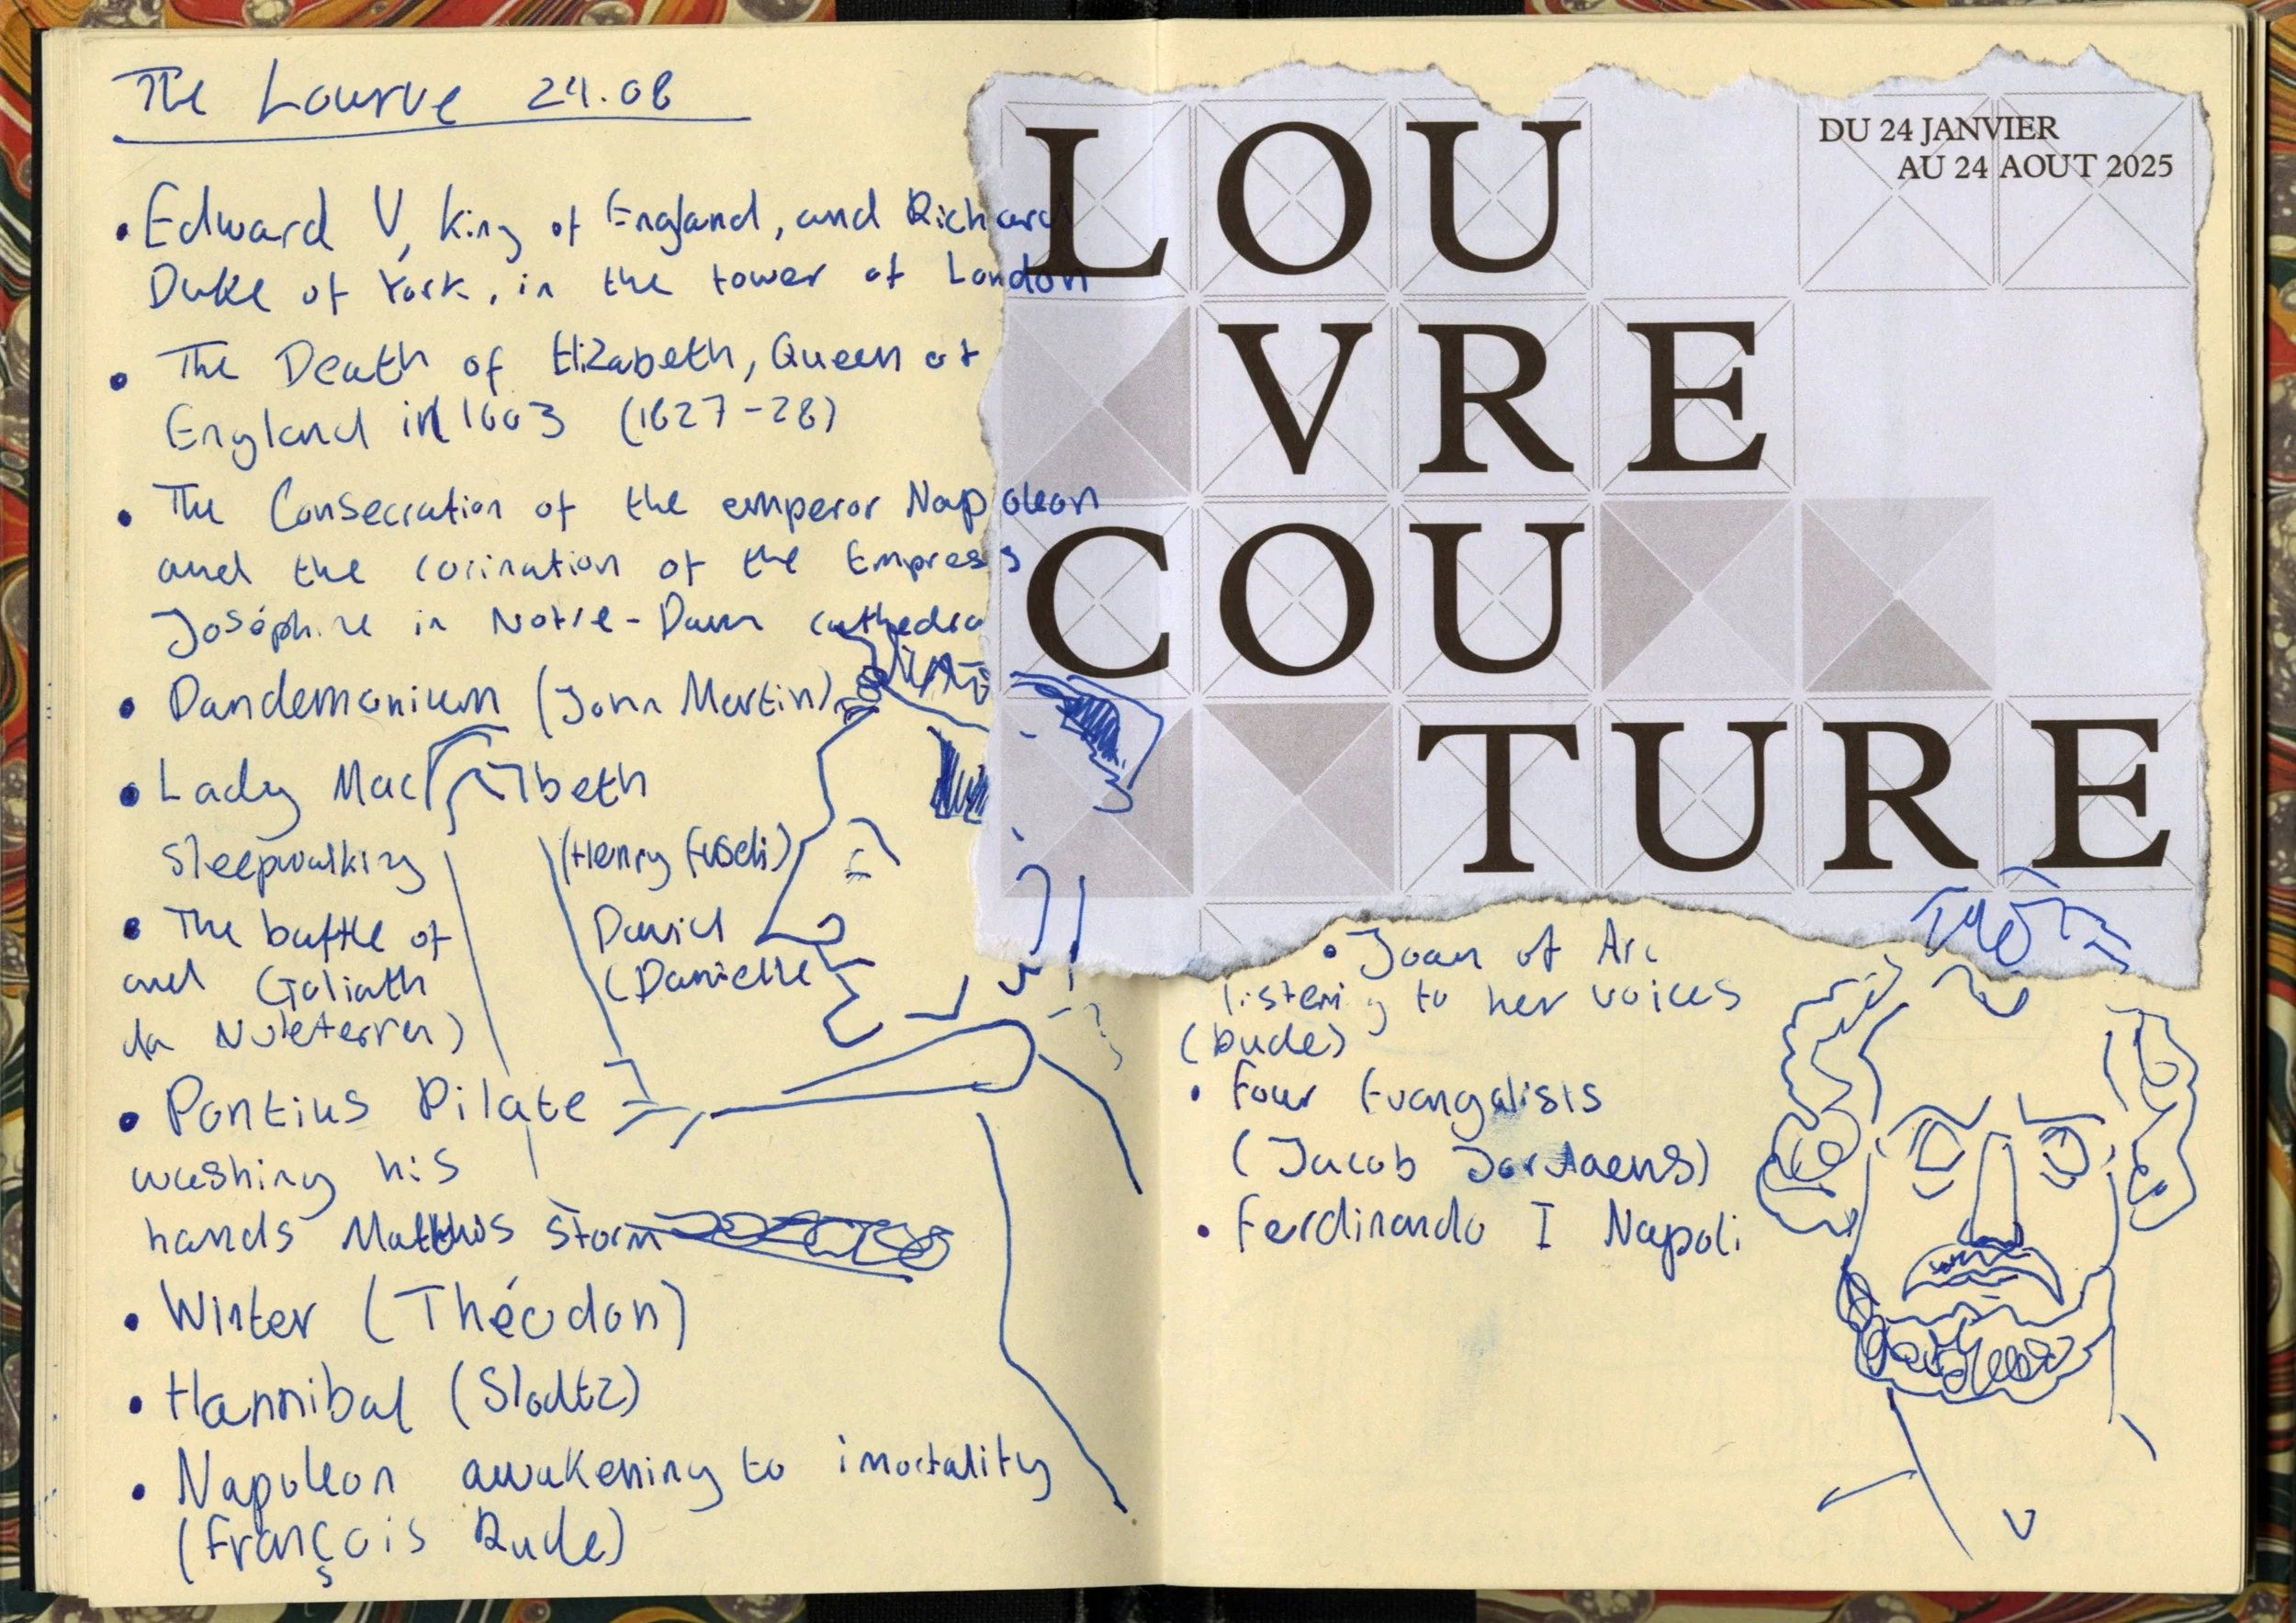 The Lourve 24.08
• Edward V, King of England, and Richard
Duke of York, in the tower of London
• The Death of Elizabeth, Queen of
England in 1603 (1827-28)
• The Consecration of the emperor Napoleon
and the corination of the Empress
Joséphine in Notre-Dam cathedra
• Pandemonium (John Martin)
• Lady Macbeth
Sleepwalking (Henry Fuseli)
• The battle of David
and Goliath (Danielle
da Voleterra)
• Pontius Pilate
washing his
hands Matthis Storm
• Winter (Théodon)
• Hannibal (Slodtz)
• Napoleon awakening to imortality
(François Rude)
LOU
VRE
COU
TURE
DU 24 JANVIER
AU 24 AOUT 2025
• Joan of Arc
listening to her voices
(Rude)
• Four Evangalists
(Jacob Jordaens)
• Ferdinando I Napoli